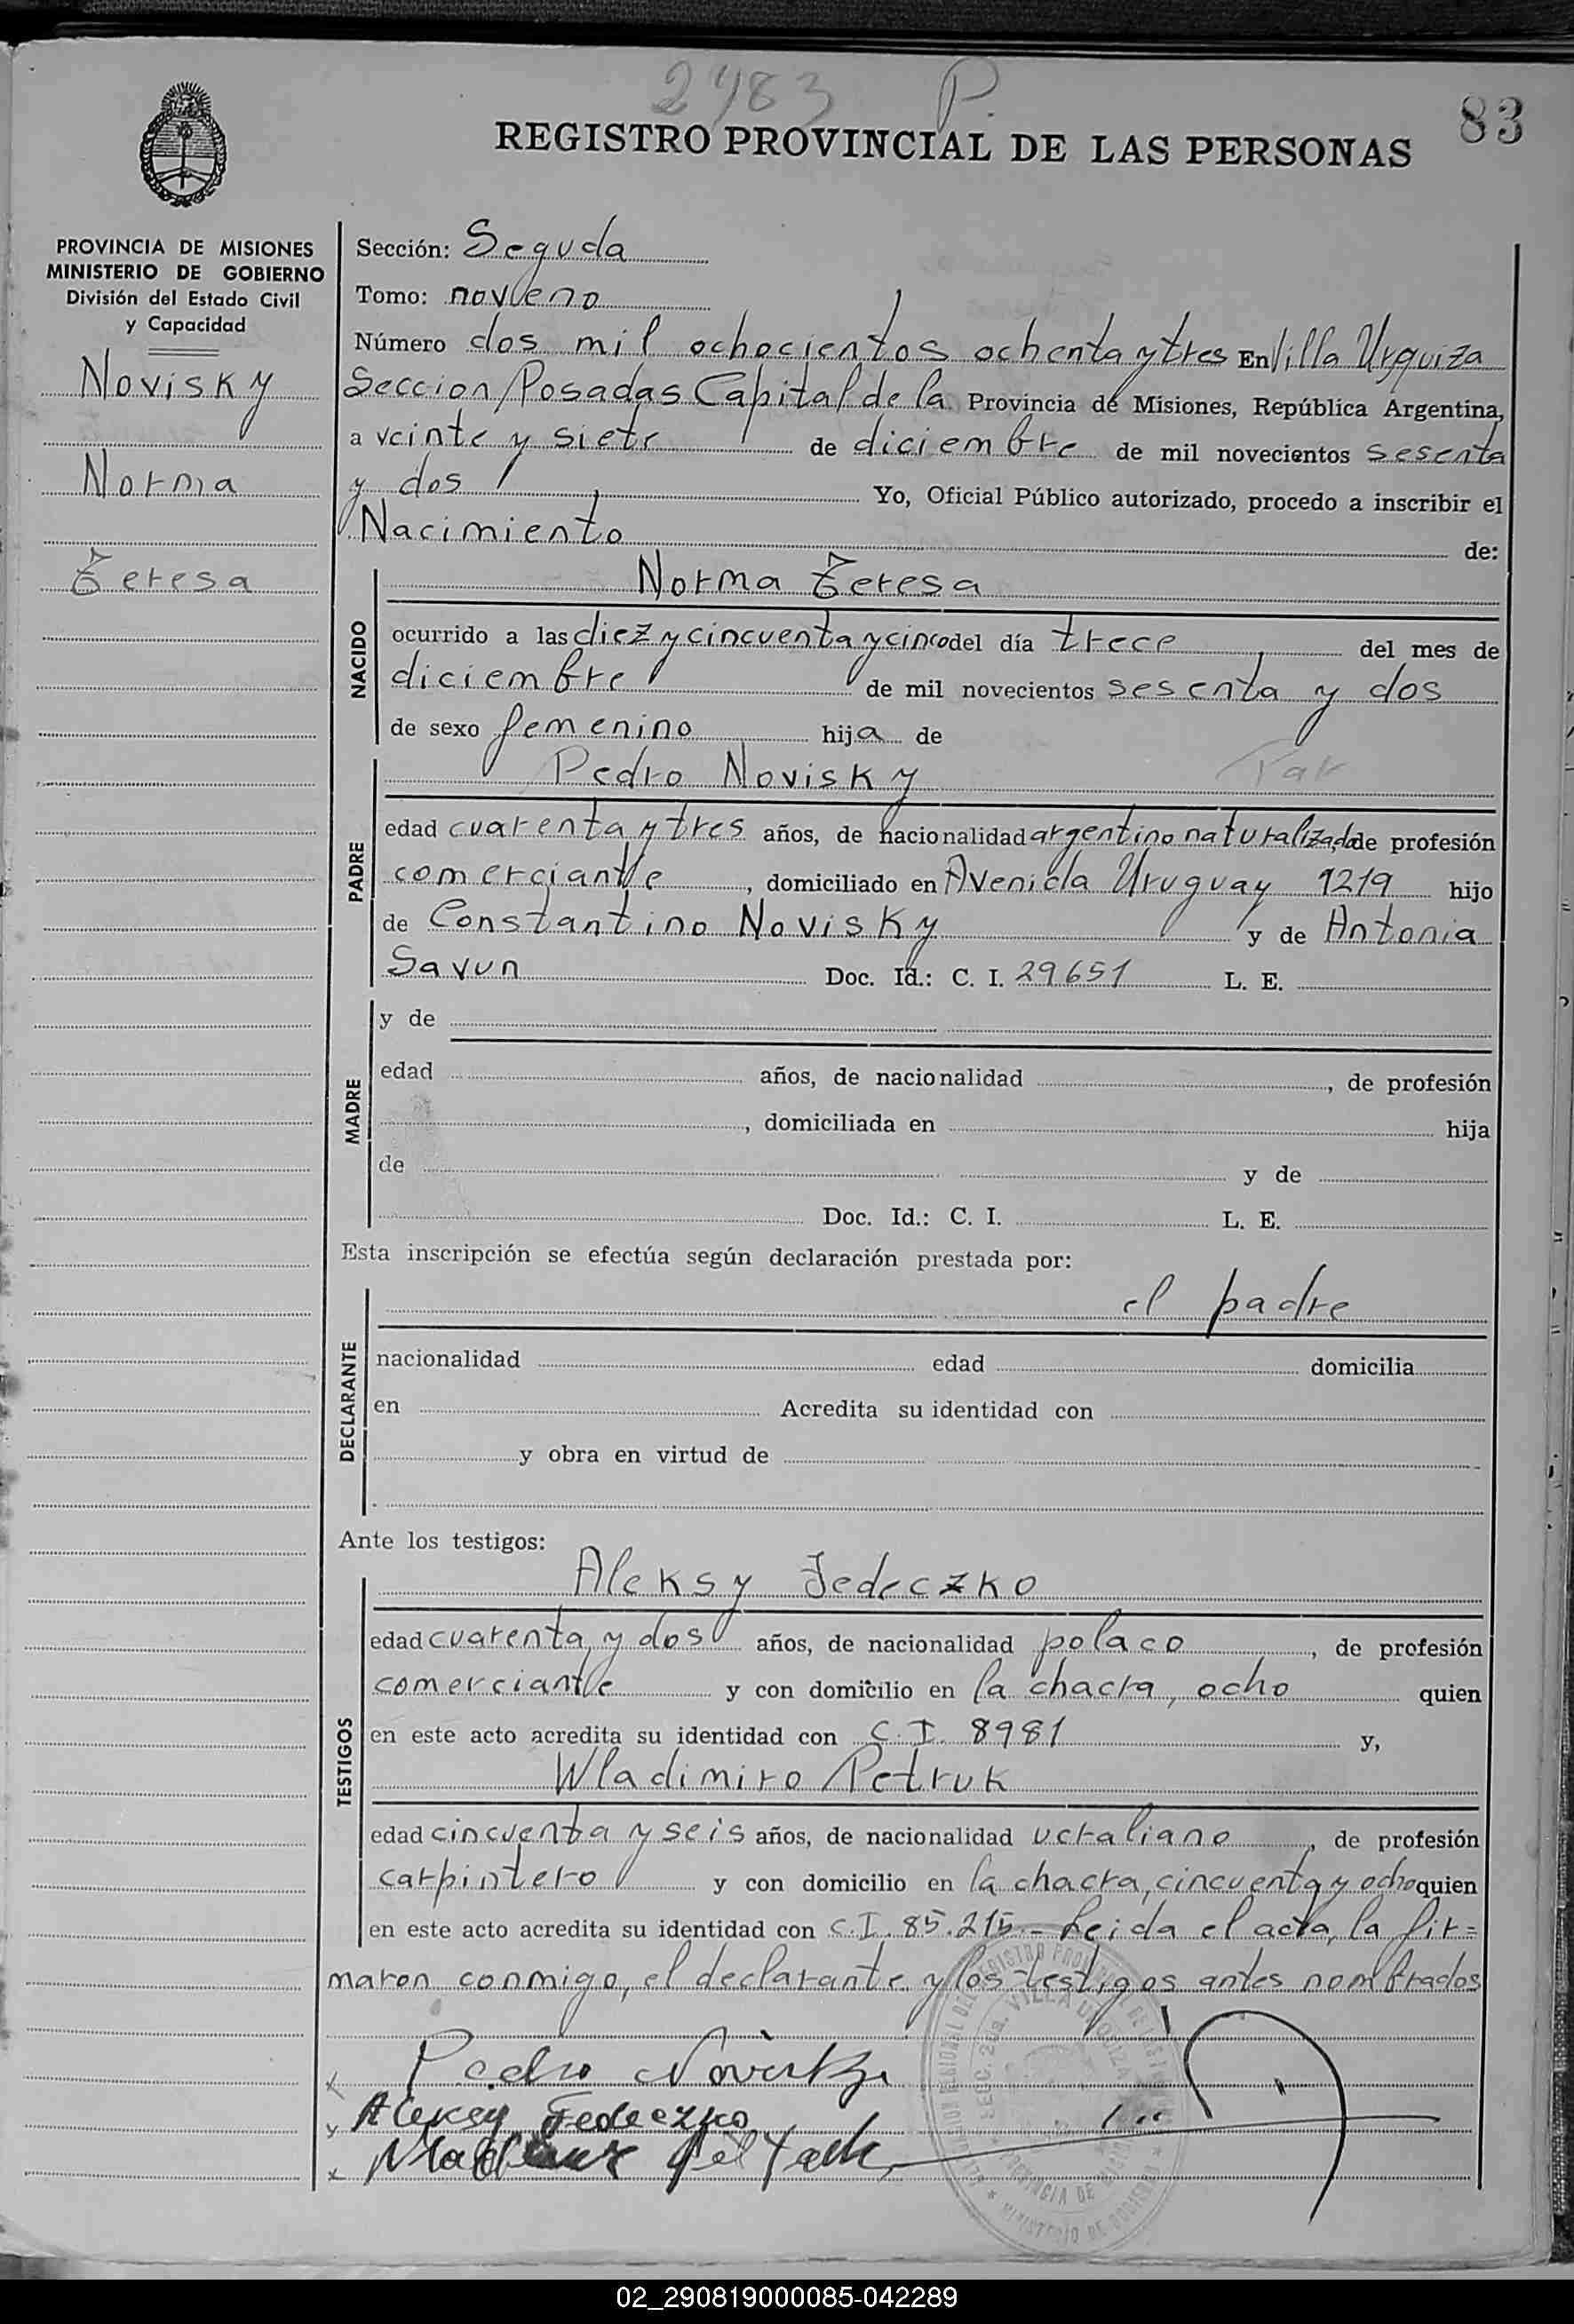 2483 P.
83
REGISTRO PROVINCIAL DE LAS PERSONAS
PROVINCIA DE MISIONES
MINISTERIO DE GOBIERNO
División del Estado Civil
y Capacidad
Novisky
Norma
Teresa
Sección: Seguda
Tomo: noveno
Número dos mil ochocientos ochenta y tres En Villa Urquiza
Seccion/Posadas Capital de la Provincia de Misiones, República Argentina,
a veinte y siete de diciembre de mil novecientos sesenta
y dos Yo, Oficial Público autorizado, procedo a inscribir el
Nacimiento de:
NACIDO
Norma Teresa
ocurrido a las diez y cincuenta y cinco del día trece del mes de
diciembre de mil novecientos sesenta y dos
de sexo femenino hija de
PADRE
Pedro Novisky
edad cuarenta y tres años, de nacionalidad argentino naturalizado de profesión
comerciante, domiciliado en Avenida Uruguay 1219 hijo
de Constantino Novisky y de Antonia
Savun Doc. Id.: C. I. 29651 L. E.
MADRE
y de
edad años, de nacionalidad , de profesión
, domiciliada en hija
de y de
Doc. Id.: C. I. L. E.
Esta inscripción se efectúa según declaración prestada por:
DECLARANTE
el padre
nacionalidad edad domicilia
en Acredita su identidad con
y obra en virtud de
Ante los testigos:
TESTIGOS
Aleksy Fedeczko
edad cuarenta y dos años, de nacionalidad polaco, de profesión
comerciante y con domicilio en la chacra, ocho quien
en este acto acredita su identidad con C.I. 8981 y,
Wladimiro Petruk
edad cincuenta y seis años, de nacionalidad ucraliano, de profesión
carpintero y con domicilio en la chacra, cincuenta y ocho quien
en este acto acredita su identidad con C.I. 85.215.- Leida el acta, la fir=
maron conmigo, el declarante y los testigos antes nombrados
Pedro Novisky
Aleksy Fedeczko
02_290819000085-042289